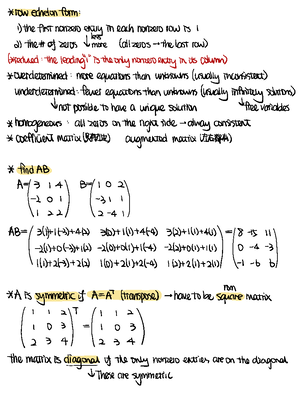 * row echelon form:
1) the first nonzero entry in each nonzero row is 1
2) the # of zeros ↓ more (all zeros → the last row)
(reduced: the leading "1" is the only nonzero entry in its column)
* overdetermined: more equations than unknowns (usually inconsistent)
underdetermined: fewer equations than unknowns (usually infinitely solutions)
↳ not possible to have a unique solution ↳ free variables
* homogeneous: all zeros on the right side → always consistent
* coefficient matrix augmented matrix
* find AB
A = (3 1 4 B = (1 0 2
-2 0 1 -2 1 1
1 2 2) 2 -4 1)
AB = (3(1)+1(-2)+4(2) 3(0)+1(1)+4(-4) 3(2)+1(1)+4(1) = (8 -15 11
-2(1)+0(-2)+1(2) -2(0)+0(1)+1(-4) -2(2)+0(1)+1(1) 0 -4 -3
1(1)+2(-2)+2(2) 1(0)+2(1)+2(-4) 1(2)+2(1)+2(1)) 1 -6 6)
* A is symmetric if A = Aᵀ (transpose) → have to be square matrix
(1 1 2 ᵀ = (1 1 2
1 0 3 1 0 3
2 3 4) 2 3 4)
the matrix is diagonal if the only nonzero entries are on the diagonal
↳ These are symmetric